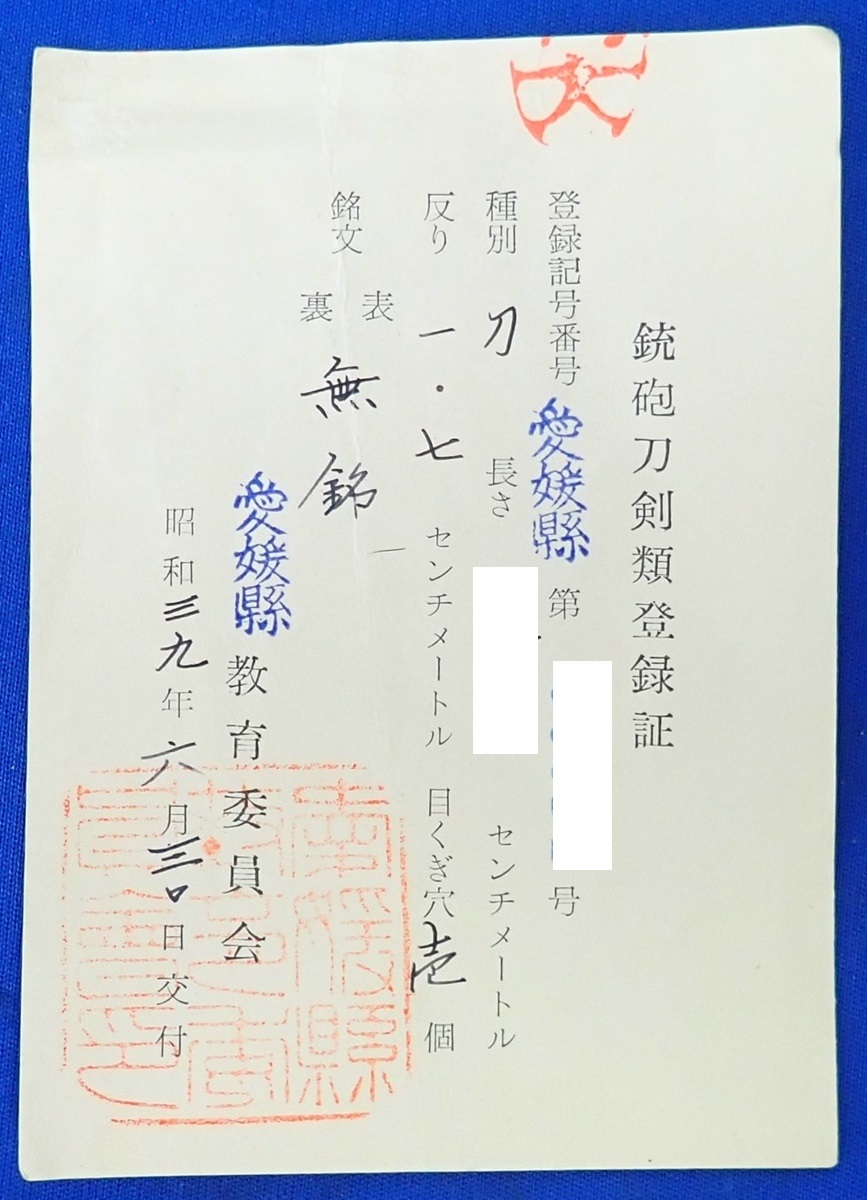 銃砲刀剣類登録証
登録記号番号 愛媛縣 第 号
種別 刀 長さ センチメートル
反り 一・七 センチメートル 目くぎ穴 壱 個
銘文 表 裏 無銘
愛媛縣教育委員会
昭和三九年六月三〇日交付